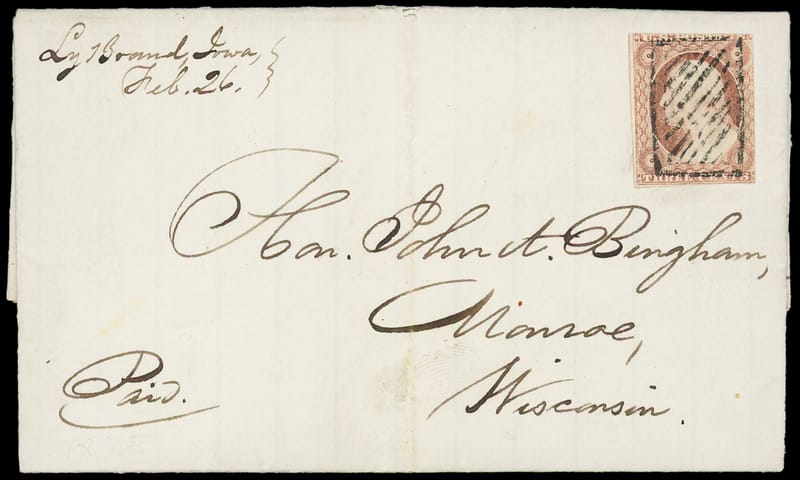 Lybrand, Iowa,
Feb. 26.
Hon. John A. Bingham,
Monroe,
Wisconsin.
Paid.
THREE CENTS